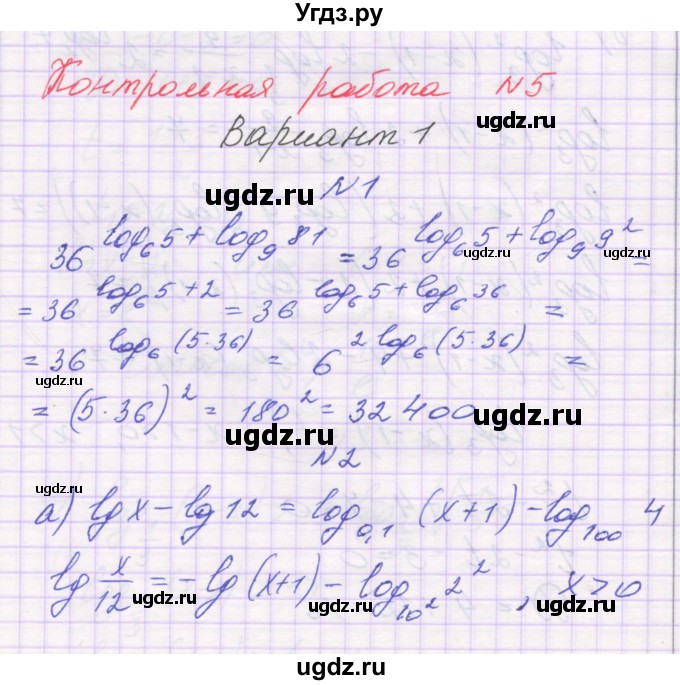 Угдз.ру
Контрольная работа №5
Вариант 1
ugdz.ru
№1
ugdz.ru
36^(log₆5 + log₉81) = 36^(log₆5 + log₉9²) =
ugdz.ru
ugdz.ru
= 36^(log₆5 + 2) = 36^(log₆5 + log₆36) =
ugdz.ru ugdz.ru
= 36^(log₆(5·36)) = 6^(2log₆(5·36)) =
ugdz.ru
= (5·36)² = 180² = 32400
ugdz.ru ugdz.ru
№2
ugdz.ru
а) lg x - lg 12 = log₀,₁ (x+1) - log₁₀₀ 4
ugdz.ru ugdz.ru
lg x/12 = -lg (x+1) - log₁₀² 2², x>0
ugdz.ru ugdz.ru ugdz.ru
ugdz.ru